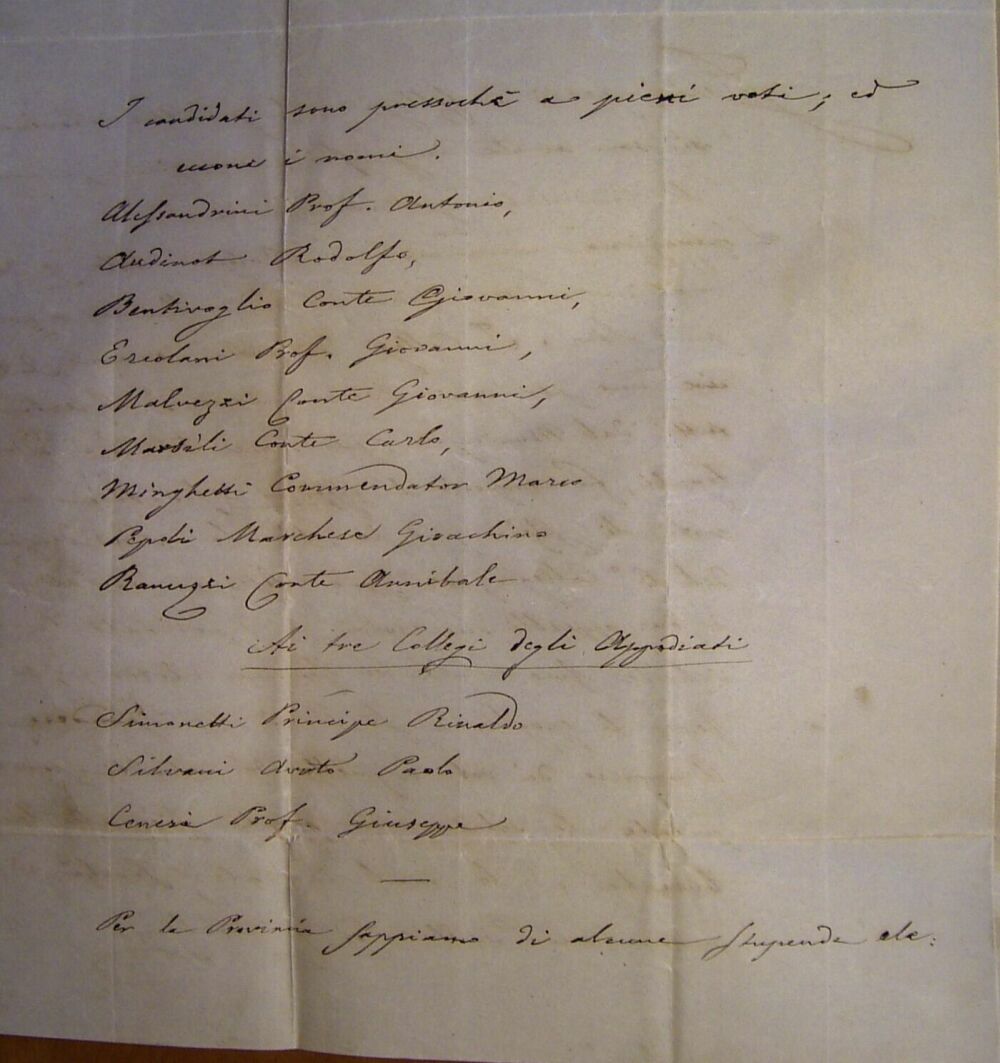 I candidati sono pressochè a pieni voti; ed
eccone i nomi.
Alessandrini Prof. Antonio,
Audinot Rodolfo,
Bentivoglio Conte Giovanni,
Ercolani Prof. Giovanni,
Malvezzi Conte Giovanni,
Marsili Conte Carlo,
Minghetti Commendator Marco
Pepoli Marchese Gioachino
Ranuzzi Conte Annibale
Ai tre Collegi degli Appodiati
Simonetti Principe Rinaldo
Silvani Avvto Paolo
Ceneri Prof. Giuseppe
Per la Provincia sappiamo di alcune stupende ele: